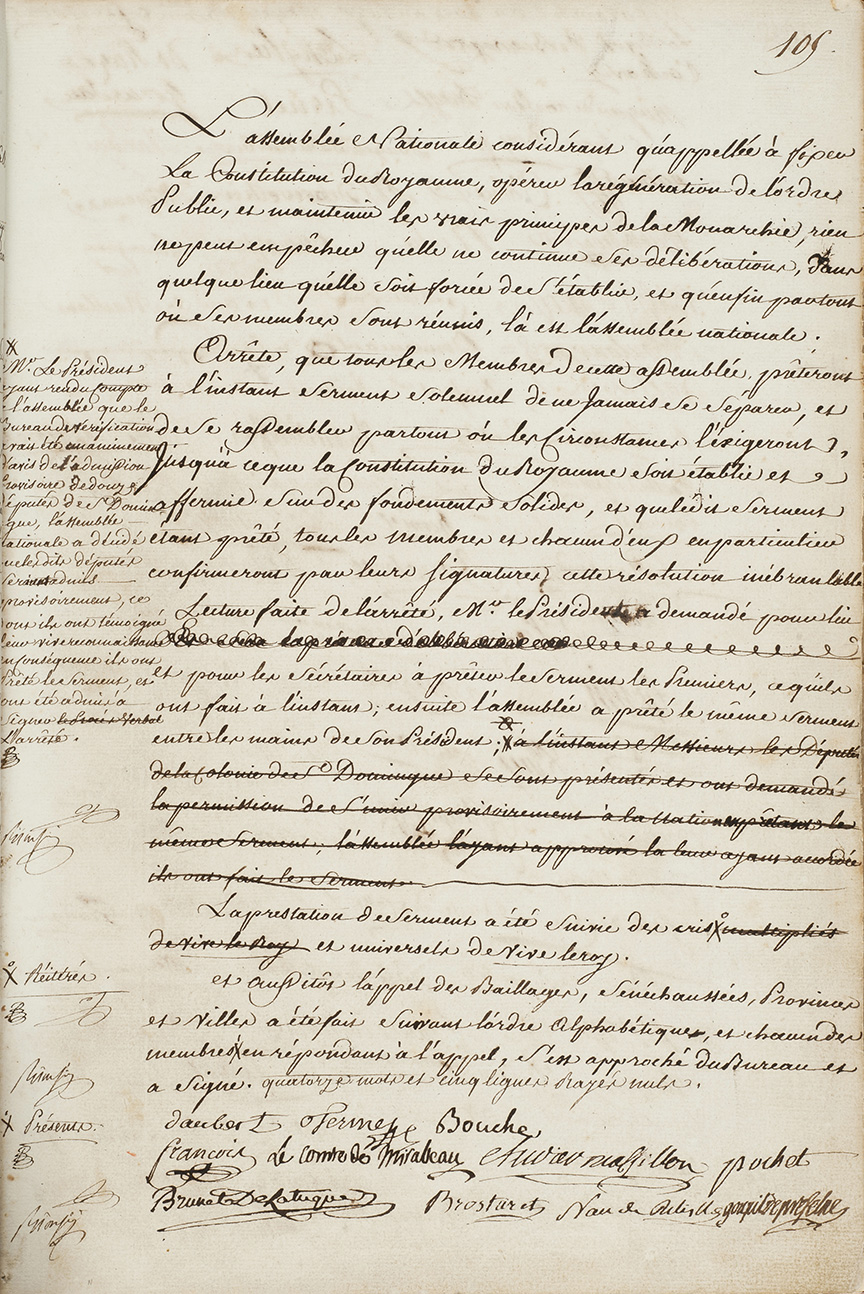 105.
L'assemblée Nationale considérant qu'appellée à fixer
La Constitution du Royaume, opérer la régénération de l'ordre
Public, et maintenir les vrais principes de la Monarchie, rien
ne peut empêcher qu'elle ne continue ses délibérations, dans
quelque lieu qu'elle soit forcée de s'établir, et qu'enfin partout
où ses membres sont réunis, là est l'assemblée nationale.
Arrête, que tous les Membres de cette assemblée, prêteront
à l'instant serment solennel de ne Jamais se séparer, et
de se rassembler partout où les Circonstances l'éxigeront,
Jusqu'à ce que la Constitution du Royaume soit établie et
affermie sur des fondements solides, et que ledit serment
étant prêté, tous les membres et chacun d'eux en particulier
confirmeront par leurs signatures, cette résolution inébranlable
Lecture faite de l'arrêté, Mr. le Président a demandé pour lui
et pour les Sécrétaires à prêter le Serment les Premiers, ce qu'ils
ont fait à l'instant; ensuite l'assemblée a prêté le même serment
entre les mains de son Président; X à l'instant Messieurs les Députés
de la Colonie de St Domingue se sont présentés et ont demandé
la permission de s'unir provisoirement à la Nation en prêtant le
même Serment, l'assemblée l'ayant approuvé la leur ayant accordée
ils ont fait le serment
La prestation de Serment a été suivie des cris X multipliés
de vive le Roy et universels de Vive le roy.
et aussitôt l'appel des Baillages, Sénéchaussées, Provinces
et Villes a été fait suivant l'ordre alphabétique, et chacun des
membres X en répondant à l'appel, s'est approché du Bureau et
a signé. quatorze mots et cinq lignes Rayés nuls.
X
Mr. Le Président
ayant rendu Compte
à l'assemblée que le
Bureau de vérification
avait été unanimement
d'avis de l'admission
Provisoire de douze
députés de St Domin
gue, l'assemblée
nationale a décidé
que les dits députés
seraient admis
provisoirement, ce
dont ils ont témoigné
leur vive reconnaissance
en conséquence ils ont
Prêté le Serment, et
ont été admis à
Signer le Procès Verbal
L'arrêté.
X Réitérés.
X Présents.
daubert Bouche
françois Le comte de Mirabeau pochet
Brunet de Latuque Brostaret goupil de prefelne